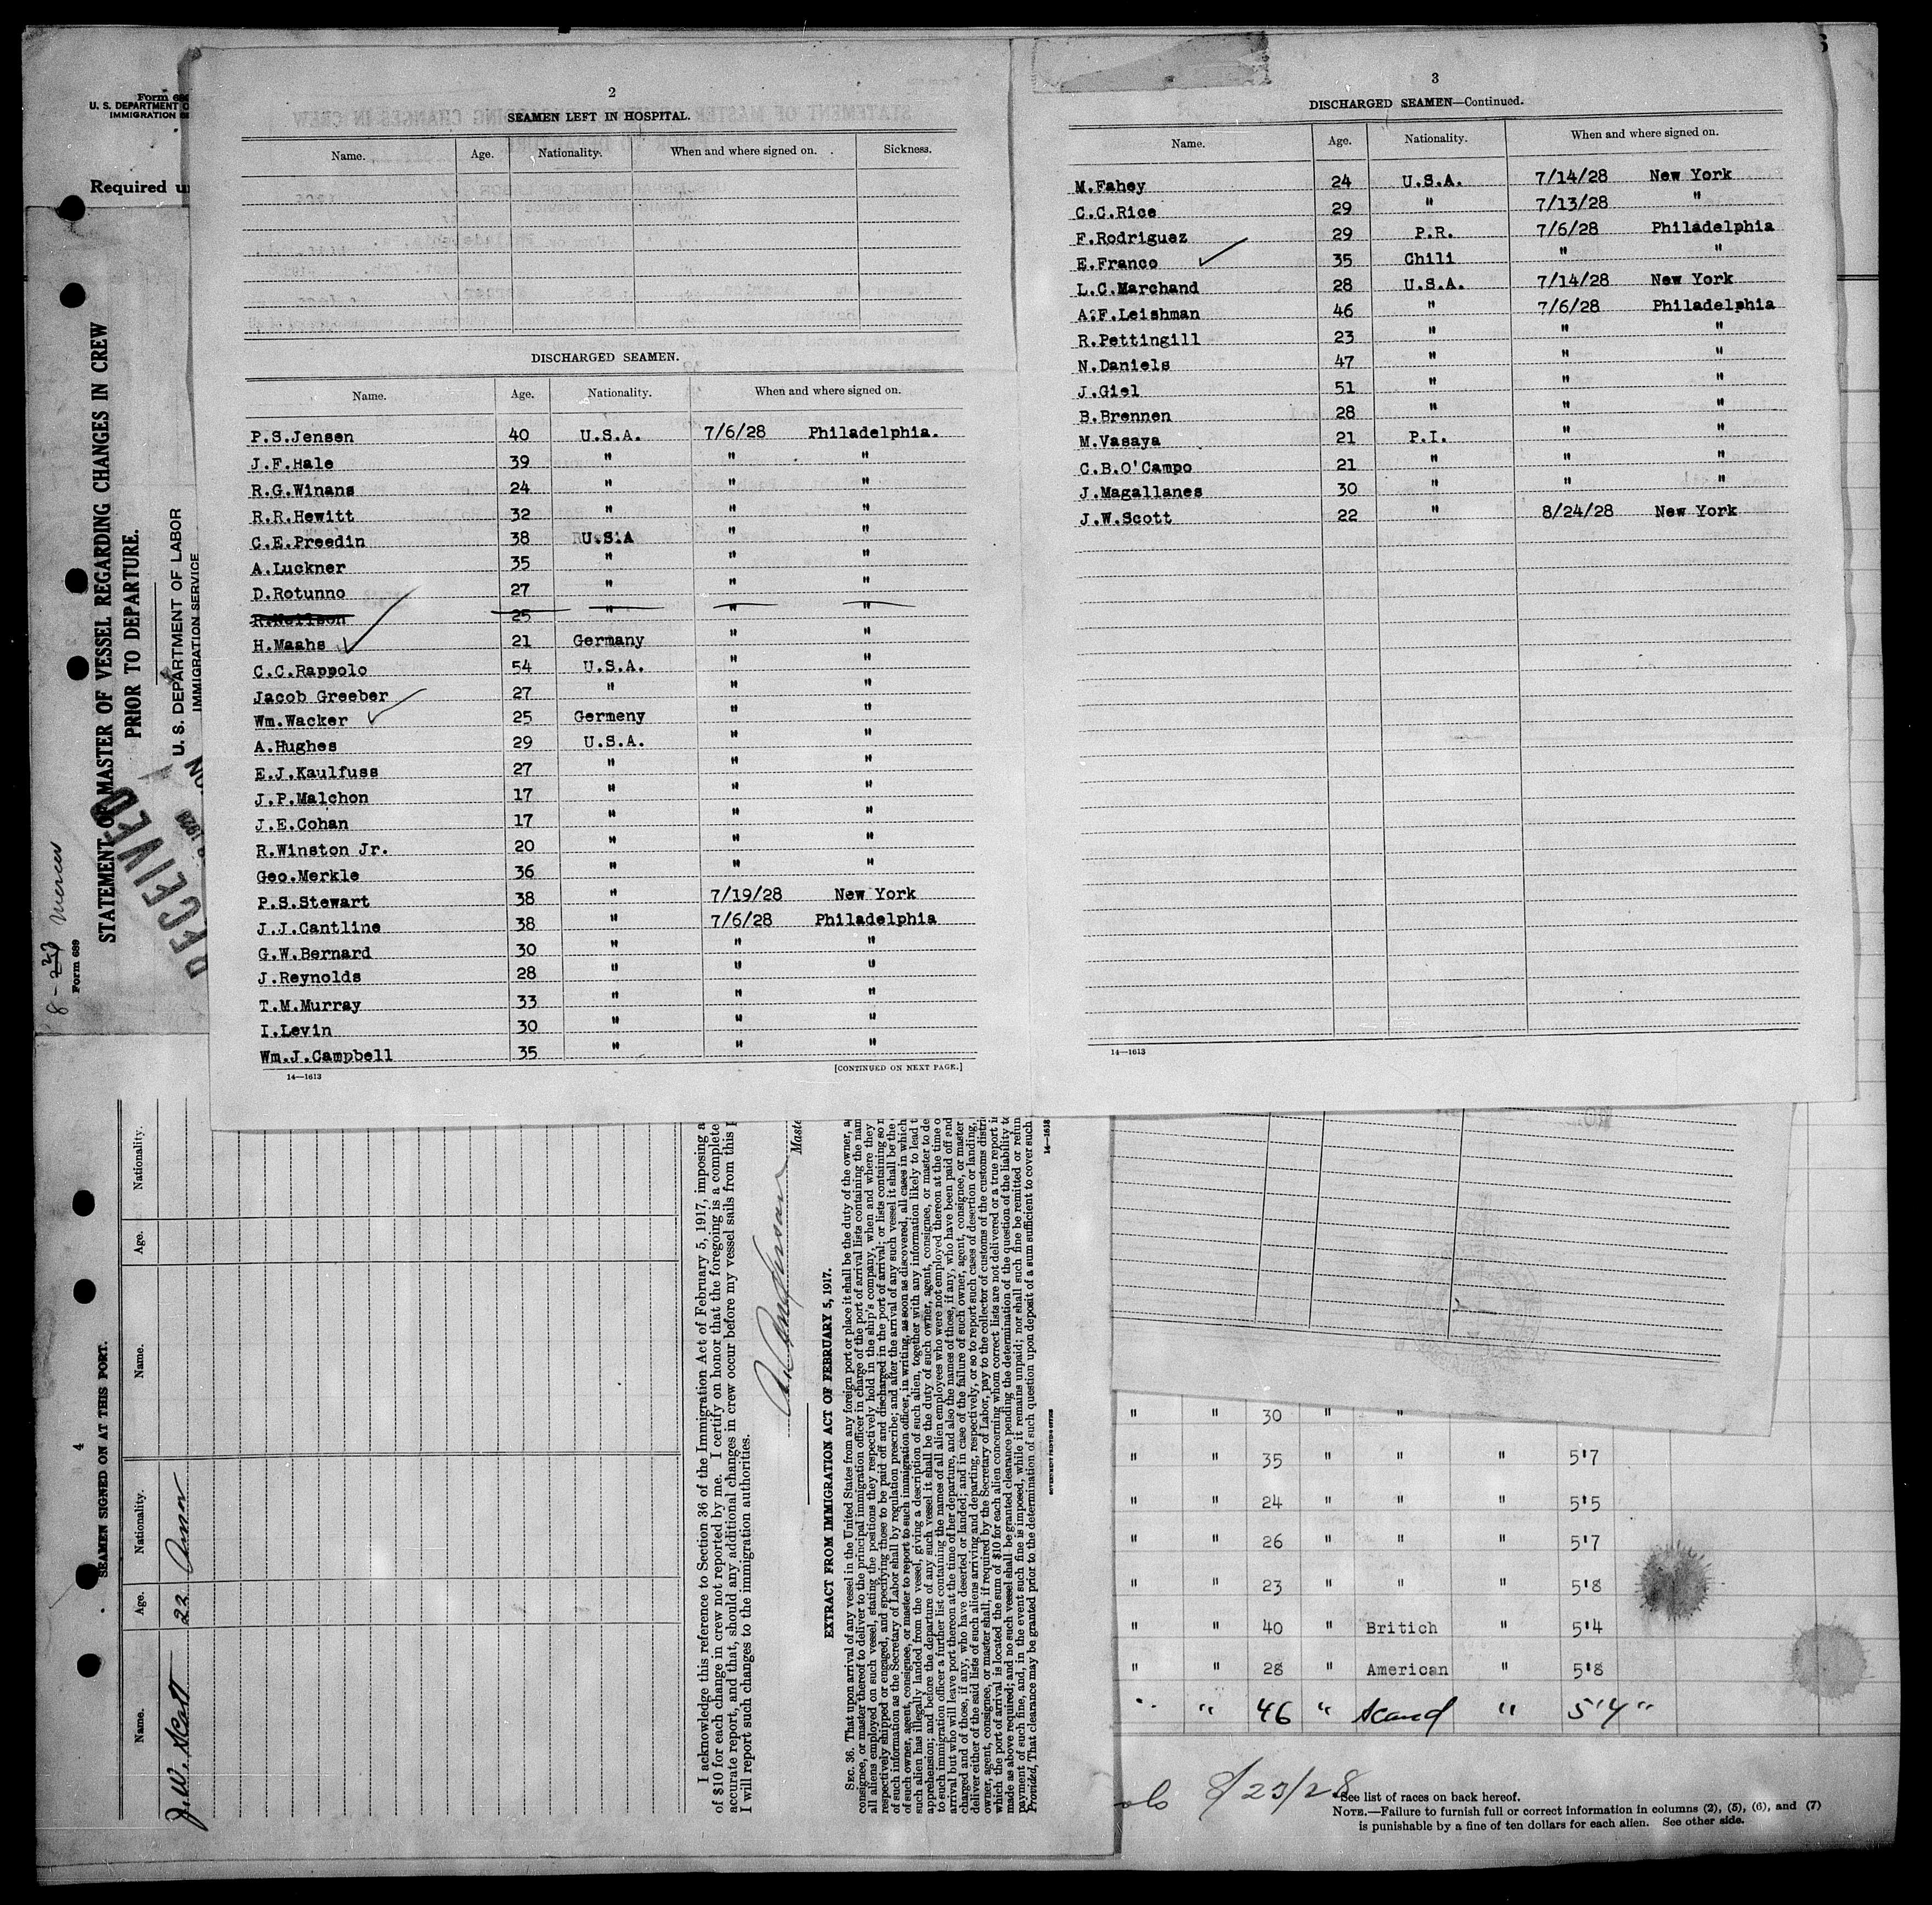 2
SEAMEN LEFT IN HOSPITAL.
Name. Age. Nationality. When and where signed on. Sickness.
DISCHARGED SEAMEN.
Name. Age. Nationality. When and where signed on.
P.S.Jensen 40 U.S.A. 7/6/28 Philadelphia.
J.F.Hale 39 " " "
R.G.Winans 24 " " "
R.R.Hewitt 32 " " "
C.E.Preedin 38 U.S.A " "
A.Luckner 35 " " "
D.Rotunno 27 " " "
R.Neilson 25 " " "
H.Maahs 21 Germany " "
C.C.Rappolo 54 U.S.A. " "
Jacob Greeber 27 " " "
Wm.Wacker 25 Germeny " "
A.Hughes 29 U.S.A. " "
E.J.Kaulfuss 27 " " "
J.P.Malchon 17 " " "
J.E.Cohan 17 " " "
R.Winston Jr. 20 " " "
Geo.Merkle 36 " " "
P.S.Stewart 38 " 7/19/28 New York
J.J.Cantline 38 " 7/6/28 Philadelphia
G.W.Bernard 30 " " "
J.Reynolds 28 " " "
T.M.Murray 33 " " "
I.Levin 30 " " "
Wm.J.Campbell 35 " " "
14—1613
[CONTINUED ON NEXT PAGE.]
3
DISCHARGED SEAMEN—Continued.
Name. Age. Nationality. When and where signed on.
M.Fahey 24 U.S.A. 7/14/28 New York
C.C.Rice 29 " 7/13/28 "
F.Rodriguez 29 P.R. 7/6/28 Philadelphia
E.Franco 35 Chili " "
L.C.Marchand 28 U.S.A. 7/14/28 New York
A.F.Leishman 46 " 7/6/28 Philadelphia
R.Pettingill 23 " " "
N.Daniels 47 " " "
J.Giel 51 " " "
B.Brennen 28 " " "
M.Vasaya 21 P.I. " "
C.B.O'Campo 21 " " "
J.Magallanes 30 " " "
J.W.Scott 22 " 8/24/28 New York
14—1613
Form 689
U. S. DEPARTMENT O
IMMIGRATION SE
Required un
8-23 Mercer
Form 689
STATEMENT OF MASTER OF VESSEL REGARDING CHANGES IN CREW
PRIOR TO DEPARTURE.
U. S. DEPARTMENT OF LABOR
IMMIGRATION SERVICE
RECEIVED
4
SEAMEN SIGNED ON AT THIS PORT.
Name. Age. Nationality. Name. Age. Nationality.
J.W. Scott 22 Amer
I acknowledge this reference to Section 36 of the Immigration Act of February 5, 1917, imposing a
of $10 for each change in crew not reported by me. I certify on honor that the foregoing is a complete
accurate report, and that, should any additional changes in crew occur before my vessel sails from this p
I will report such changes to the immigration authorities.
Maste
EXTRACT FROM IMMIGRATION ACT OF FEBRUARY 5, 1917.
SEC. 36. That upon arrival of any vessel in the United States from any foreign port or place it shall be the duty of the owner, a
consignee, or master thereof to deliver to the principal immigration officer in charge of the port of arrival lists containing the nam
all aliens employed on such vessel, stating the positions they respectively hold in the ship's company, when and where they
respectively shipped or engaged, and specifying those to be paid off and discharged in the port of arrival; or lists containing so m
of such information as the Secretary of Labor shall by regulation prescribe; and after the arrival of any such vessel it shall be the
of such owner, agent, consignee, or master to report to such immigration officer, in writing, as soon as discovered, all cases in which
such alien has illegally landed from the vessel, giving a description of such alien, together with any information likely to lead t
apprehension; and before the departure of any such vessel it shall be the duty of such owner, agent, consignee, or master to de
to such immigration officer a further list containing the names of all alien employees who were not employed thereon at the time o
arrival but who will leave port thereon at the time of her departure, and also the names of those, if any, who have been paid off and
charged and of those, if any, who have deserted or landed; and in case of the failure of such owner, agent, consignee, or master
deliver either of the said lists of such aliens arriving and departing, respectively, or so to report such cases of desertion or landing,
owner, agent, consignee, or master shall, if required by the Secretary of Labor, pay to the collector of customs of the customs distri
which the port of arrival is located the sum of $10 for each alien concerning whom correct lists are not delivered or a true report i
made as above required; and no such vessel shall be granted clearance pending the determination of the question of the liability to
payment of such fine, and, in the event such fine is imposed, while it remains unpaid; nor shall such fine be remitted or refun
Provided, That clearance may be granted prior to the determination of such question upon deposit of a sum sufficient to cover such
14—1613
GOVERNMENT PRINTING OFFICE
" " 30 " "
" " 35 " " " 5'7
" " 24 " " " 5'5
" " 26 " " " 5'7
" " 23 " " " 5'8
" " 40 " Britich " 5'4
" " 28 " American " 5'8
" " 46 " Scand " 5'4"
8/23/28
See list of races on back hereof.
NOTE.—Failure to furnish full or correct information in columns (2), (5), (6), and (7)
is punishable by a fine of ten dollars for each alien. See other side.